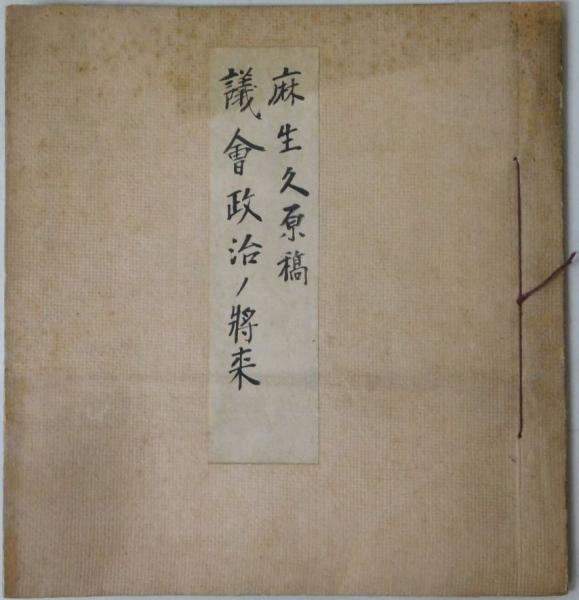 麻生久原稿
議會政治ノ將来